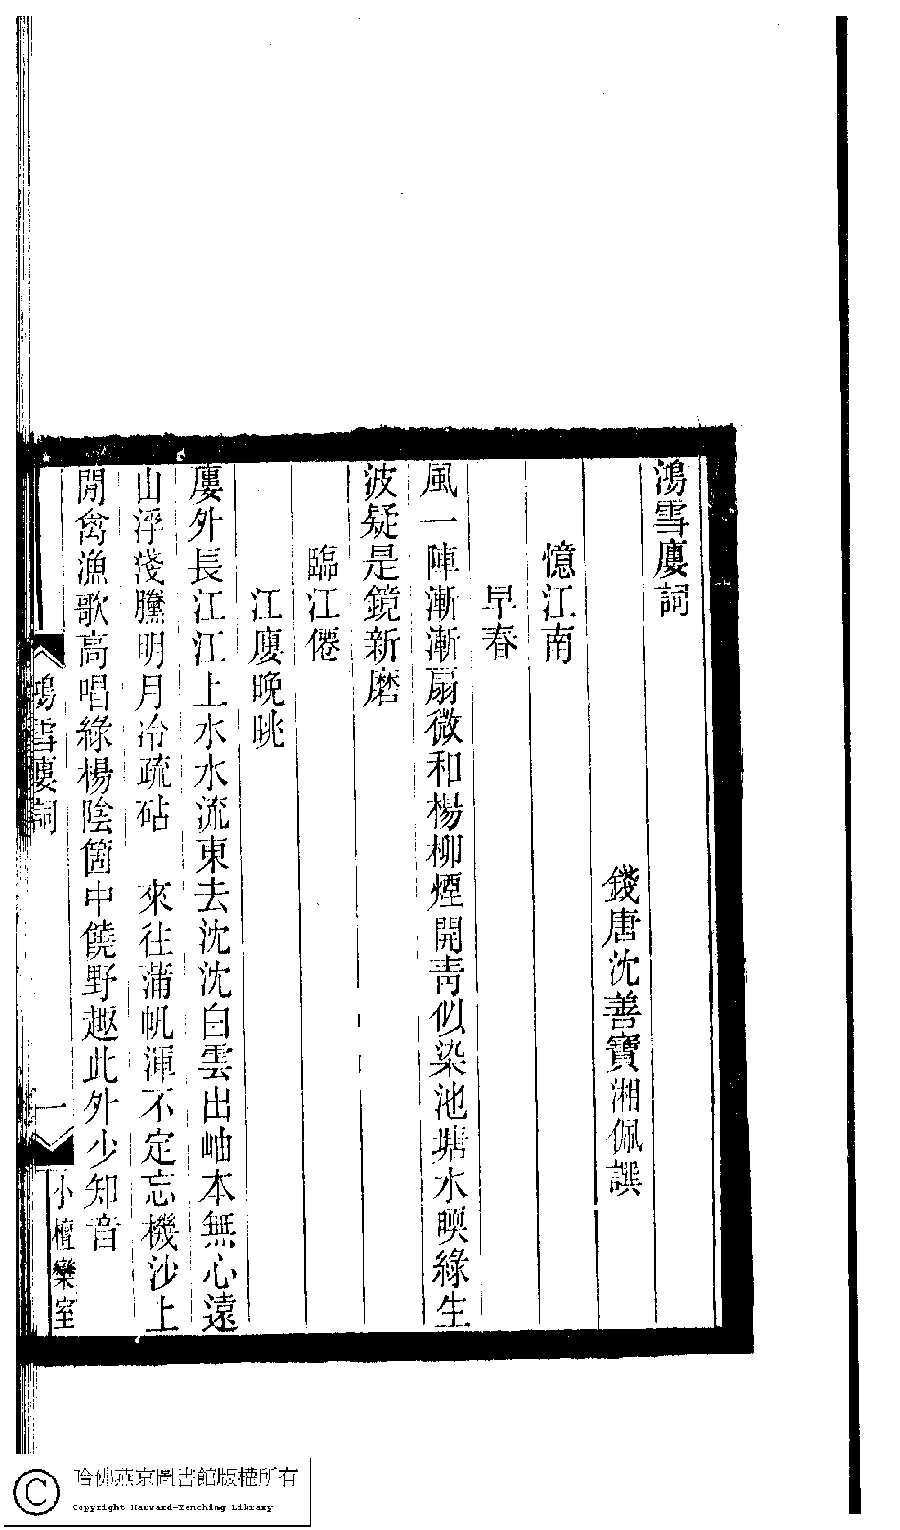 鴻雪廔詞
錢唐沈善寶湘佩譔
憶江南
早春
風一陣漸漸扇微和楊柳煙開靑似染池塘水暝綠生
波疑是鏡新磨
臨江僊
江廔晚眺
廔外長江江上水水流東去沈沈白雲出岫本無心遠
山浮淺黱明月冷疏砧　來往蒲帆渾不定忘機沙上
閒禽漁歌高唱綠楊陰箇中饒野趣此外少知音
鴻雪廔詞
一
小檀欒室
哈佛燕京圖書館版權所有
Copyright Harvard-Yenching Library